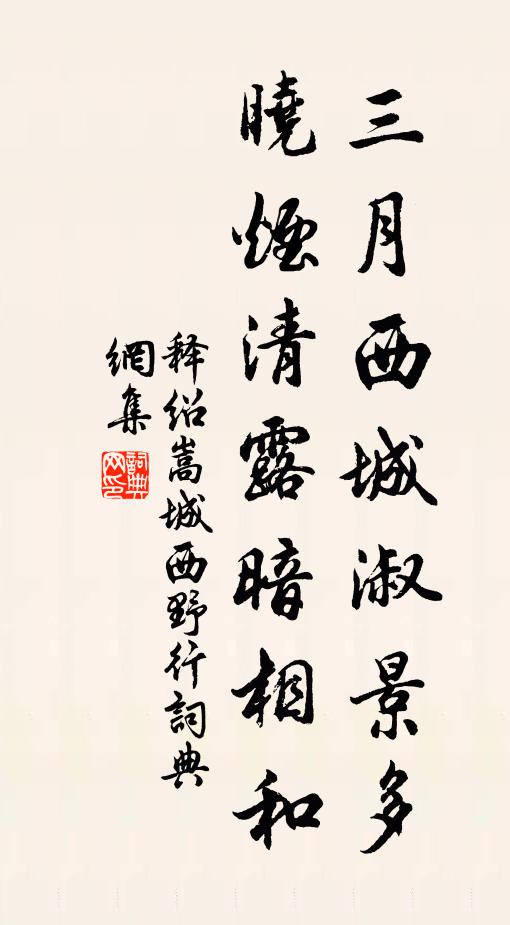 三月西城淑景多
曉煙清露暗相和
释紹嵩城西野行詞典
網集
詞典
网印